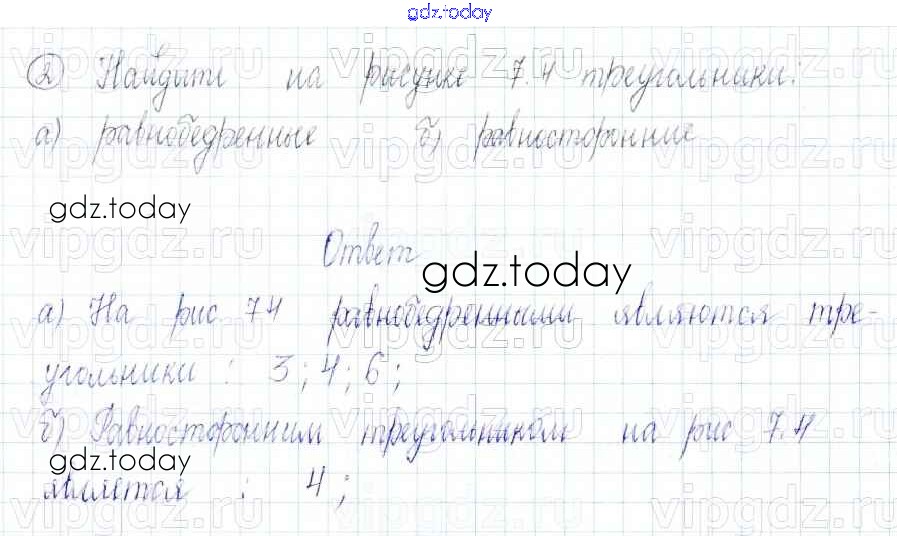 gdz.today
② Найдите на рисунке 7.4 треугольники:
а) равнобедренные б) равносторонние
gdz.today
Ответ
gdz.today
а) На рис 7.4 равнобедренными являются тре-
угольники : 3 ; 4 ; 6 ;
б) Равносторонним треугольником на рис 7.4
gdz.today
является : 4 ;
vipgdz.ru